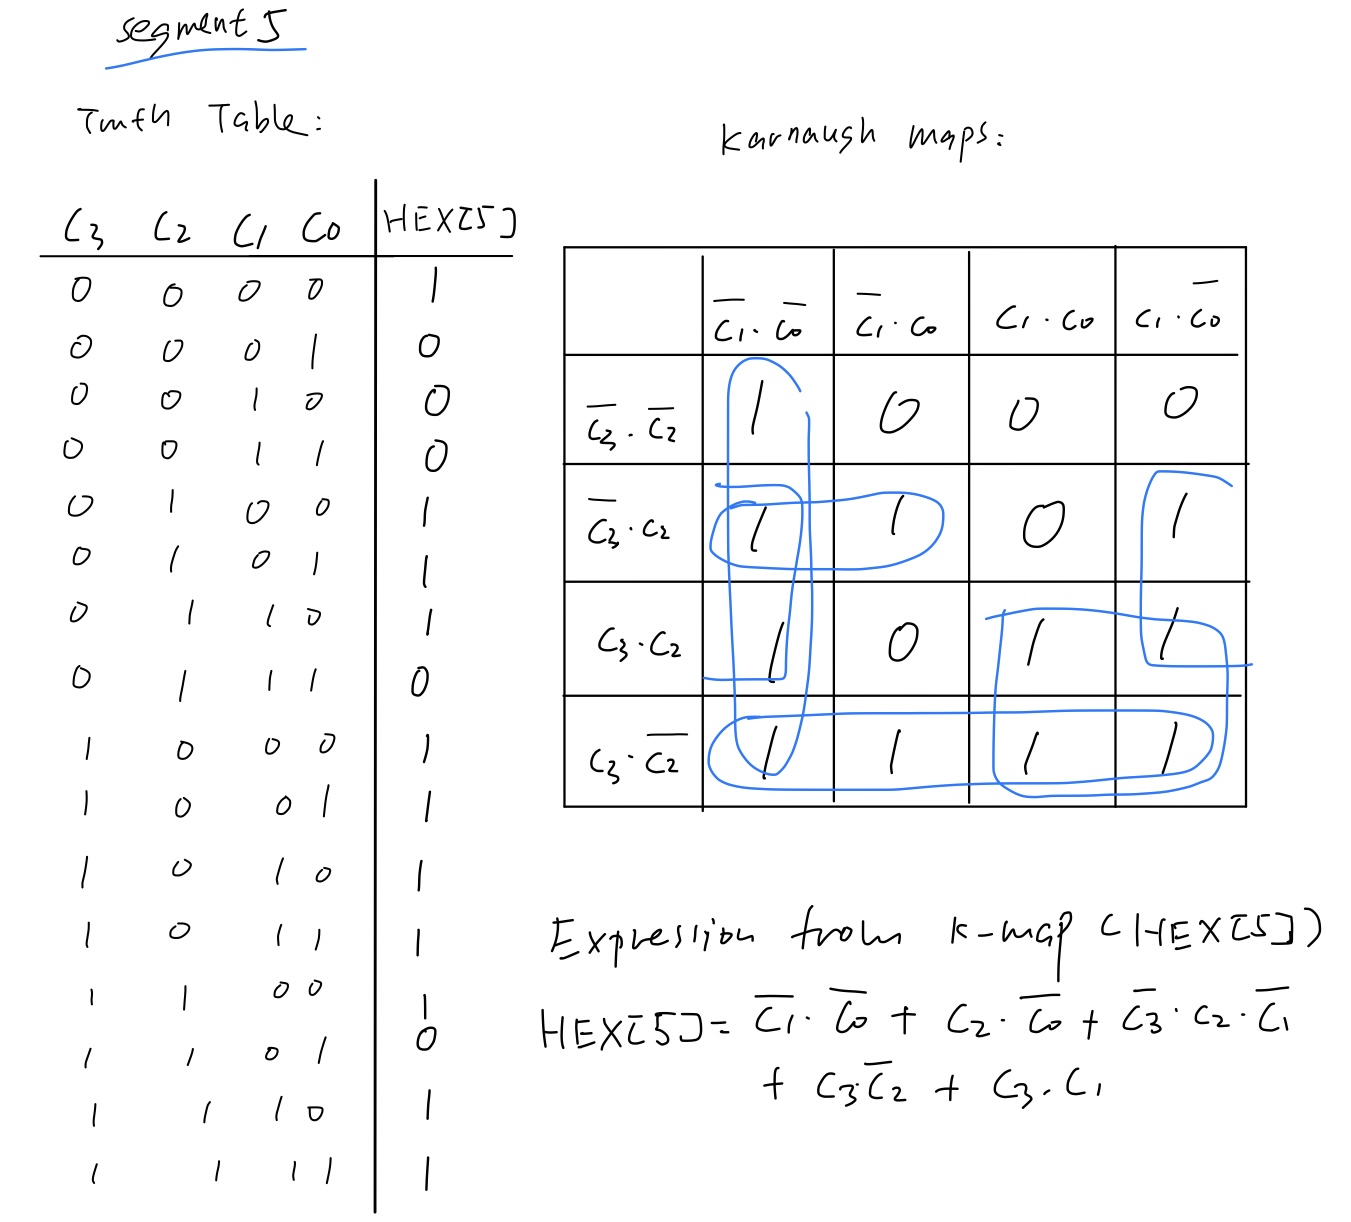 segment 5
Truth Table:
C3 C2 C1 C0 HEX[5]
0 0 0 0 1
0 0 0 1 0
0 0 1 0 0
0 0 1 1 0
0 1 0 0 1
0 1 0 1 1
0 1 1 0 1
0 1 1 1 0
1 0 0 0 1
1 0 0 1 1
1 0 1 0 1
1 0 1 1 1
1 1 0 0 1
1 1 0 1 0
1 1 1 0 1
1 1 1 1 1
Karnaugh maps:
C̅1·C̅0 C̅1·C0 C1·C0 C1·C̅0
C̅3·C̅2 1 0 0 0
C̅3·C2 1 1 0 1
C3·C2 1 0 1 1
C3·C̅2 1 1 1 1
Expression from K-map (HEX[5])
HEX[5]= C̅1·C̅0 + C2·C̅0 + C̅3·C2·C̅1
+ C3·C̅2 + C3·C1